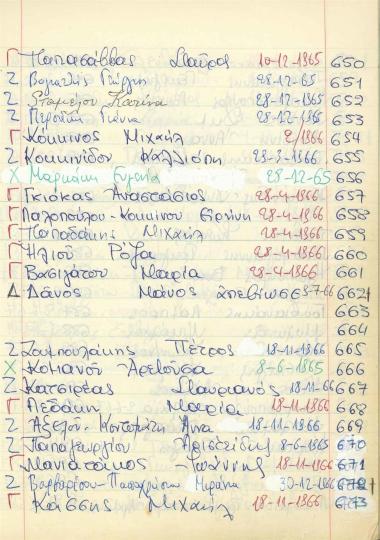 Γ Παπασάββας Σταύρος 10-12-1965 650
Σ Γιώργης 28-12-65 651
Σ Σταμέλου Κατίνα 28-12-1965 652
Σ Γιάννα 28-12-1965 653
Γ Κόκκινος Μιχαήλ 2/1966 654
Σ Κοκκινίδου Καλλιόπη 28-3-1966 655
Χ Μαρκάκη Ευγενία 28-12-65 656
Γ Γκιόκας Αναστάσιος 28-4-1966 657
Γ Παλοπούλου-Κοκκίνου Ειρήνη 28-4-1966 658
Γ Παπαδάκης Μιχαήλ 28-4-1966 659
Γ Ηλιού Ρόζα 28-4-1966 660
Γ Βασιλάτου Μαρία 28-4-1966 661
Δ Δάνος Μάνος απεβίωσε 3-7-66 662
663
664
Σ Πέτρος 18-11-66 665
Χ Κομιανού Αρεθούσα 8-6-1965 666
Σ Κατσιρέας Σταυριανός 18-11-66 667
Γ Πεδάκη Μαρία 18-11-1966 668
Σ Άννα 18-11-1966 669
Σ Παπαγεωργίου Αριστείδης 8-6-1965 670
Γ Μανιατάκος Ιωάννης 18-11-1966 671
Σ 30-12-1966 672
Γ Κάτσης Μιχαήλ 18-11-1966 673